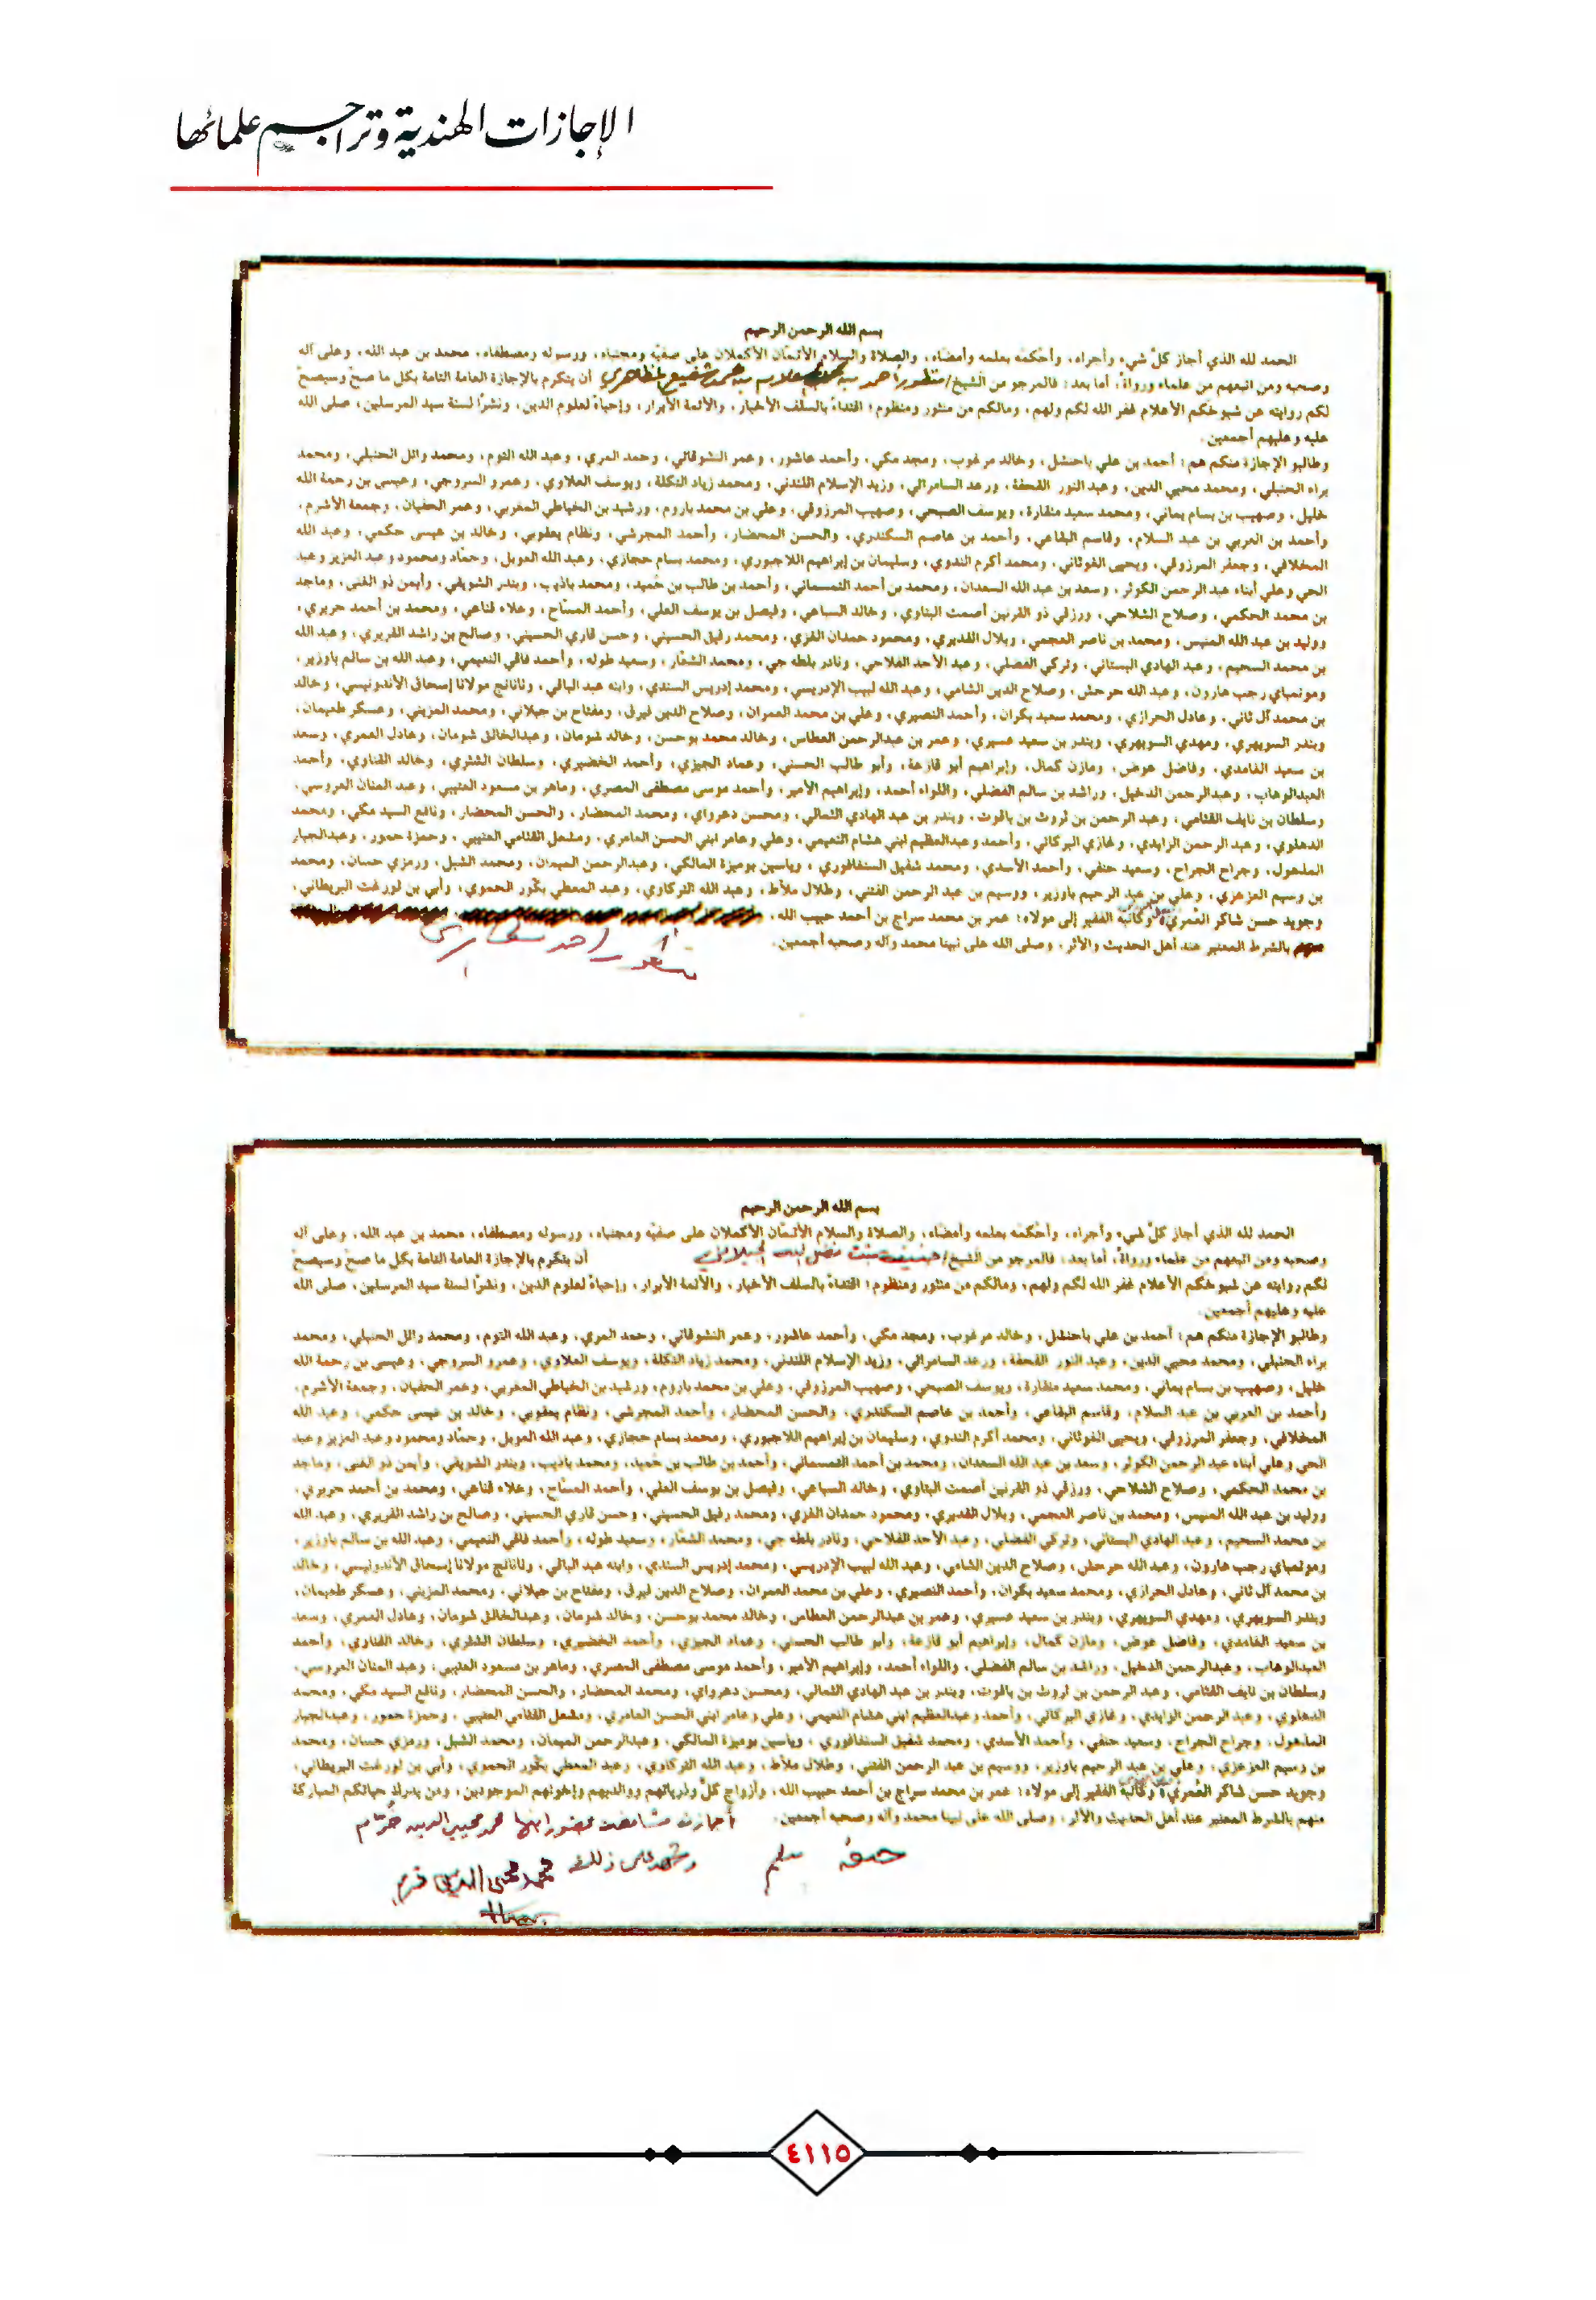 الإجازات الهندية وتراجم علمائها
بسم الله الرحمن الرحيم
الحمد لله الذي أجاز كلَّ شيء وأجراه، وأحْكمَه بعلمه وأمضاه، والصلاة والسلام الأتمّان الأكملان على صفيّه ومجتباه، ورسوله ومصطفاه، محمد بن عبد الله، وعلى آله
وصحبه ومن اتبعهم من علماء ورواة، أما بعد: فالمرجو من الشيخ/ منظور أحمد بن محمد شفيع المظاهري أن يتكرم بالإجازة العامة التامة بكل ما صح وسيصح
لكم روايته عن شيوخكم الأعلام غفر الله لكم ولهم، ومالكم من منثور ومنظوم؛ اقتداءً بالسلف الأخيار، والأئمة الأبرار، وإحياءً لعلوم الدين، ونشرًا لسنة سيد المرسلين، صلى الله
عليه وعليهم أجمعين.
وطالبو الإجازة منكم هم: أحمد بن علي باحنشل، وخالد مرغوب، ومجد مكي، وأحمد عاشور، وعمر النشوقاتي، وحمد المري، وعبد الله التوم، ومحمد وائل الحنبلي، ومحمد
براء الحنبلي، ومحمد محيي الدين، وعبد النور القحفة، ورعد السامرائي، وزيد الإسلام اللندني، ومحمد زياد التكلة، ويوسف العلاوي، وعمرو السروجي، وعيسى بن رحمة الله
خليل، وصهيب بن بسام يماني، ومحمد سعيد منقارة، ويوسف الصبحي، وصهيب المرزوقي، وعلي بن محمد باروم، ورشيد بن الخياطي المغربي، وعمر الحفيان، وجمعة الأشرم،
وأحمد بن العربي بن عبد السلام، وقاسم البقاعي، وأحمد بن عاصم السكندري، والحسن المحضار، وأحمد المجرشي، ونظام يعقوبي، وخالد بن عيسى حكمي، وعبد الله
المخلافي، وجعفر المرزوقي، ويحيى الغوثاني، ومحمد أكرم الندوي، وسليمان بن إبراهيم اللاجبوري، ومحمد بسام حجازي، وعبد الله العويل، وحمّاد ومحمود وعبد العزيز وعبد
الحي وعلي أبناء عبد الرحمن الكوثر، وسعد بن عبد الله السعدان، ومحمد بن أحمد وأحمد بن طالب بن حُميد، ومحمد باذيب، وبندر الشويقي، وأيمن ذو الغنى، وماجد
بن محمد الحكمي، وصلاح الشلاحي، ورزقي ذو القرنين أصمت البتاوي، وخالد السباعي، وفيصل بن يوسف العلي، وأحمد وعلاء قناعي، ومحمد بن أحمد حريري،
ووليد بن عبد الله المنيس، ومحمد بن ناصر العجمي، وبلال ومحمود حمدان الغزي، ومحمد رفيق الحسيني، وحسن قاري الحسيني، وصالح بن راشد القريري، وعبد الله
بن محمد السحيم، وعبد الهادي البستاني، وتركي الفضلي، وعبد الأحد الفلاحي، ومحمد الشعّار، وسعيد طوله، وأحمد النعيمي، وعبد الله بن سالم باوزير،
رجب هارون، وعبد الله حرحش، وصلاح الدين الشامي، وعبد الله لبيب الإدريسي، ومحمد إدريس السندي، وابنه عبد الباقي، مولانا إسحاق الأندونيسي، وخالد
بن محمد آل ثاني، وعادل الحرازي، ومحمد سعيد بكران، وأحمد النصيري، وعلي بن محمد العمران، وصلاح الدين ومفتاح بن جيلاني، ومحمد وعسكر طعيمان،
وبندر السويهري، ومهدي السويهري، وبندر بن سعيد عسيري، وعمر بن عبدالرحمن العطاس، وخالد محمد بوحسن، وخالد شومان، وعبدالخالق شومان، وعادل العمري، وسعد
بن سعيد الغامدي، وفاضل عوض، ومازن كمال، وإبراهيم أبو وأبو طالب الحسني، وعماد الجيزي، وأحمد الخضيري، وسلطان وخالد القناوي، وأحمد
العبدالوهاب، وعبدالرحمن الدخيل، وراشد بن سالم الفضلي، واللواء أحمد، وإبراهيم الأمير، وأحمد موسى مصطفى المصري، وماهر بن مسعود العتيبي، وعبد المنان العروسي،
وسلطان بن نايف القثامي، وعبد الرحمن بن ثروت بن ياقوت، وبندر بن عبد الهادي الثمالي، ومحسن ومحمد المحضار، والحسن المحضار، ونافع السيد مكي، ومحمد
الدهلوي، وعبد الرحمن الزايدي، وغازي البركاتي، وأحمد وعبدالعظيم ابني هشام النعيمي، وعلي وعامر ابني الحسن العامري، ومشعل القثامي العتيبي، وحمزة حمور، وعبدالجبار
وجراح الجراح، وسعيد حنفي، وأحمد الأسدي، ومحمد شفيق السنغافوري، وياسين بوميزة المالكي، وعبدالرحمن الميمان، ومحمد الشبل، ورمزي حسان، ومحمد
بن وسيم وعلي بن عبد الرحيم باوزير، ووسيم بن عبد الرحمن وطلال ملاط، وعبد الله التركاوي، وعبد المعطي بكّور الحموي، وأبي بن لورغت البريطاني،
وجويد حسن شاكر العُمري، وكاتبه الفقير إلى مولاه: عمر بن محمد سراج بن أحمد حبيب الله،
بالشرط المعتبر عند أهل الحديث والأثر، وصلى الله على نبينا محمد وآله وصحبه أجمعين.
منظور أحمد
بسم الله الرحمن الرحيم
الحمد لله الذي أجاز كلَّ شيء وأجراه، وأحْكمَه بعلمه وأمضاه، والصلاة والسلام الأتمّان الأكملان على صفيّه ومجتباه، ورسوله ومصطفاه، محمد بن عبد الله، وعلى آله
وصحبه ومن اتبعهم من علماء ورواة، أما بعد: فالمرجو من الشيخ/ بنت فضل الله الجيلاني أن يتكرم بالإجازة العامة التامة بكل ما صح وسيصح
لكم روايته عن شيوخكم الأعلام غفر الله لكم ولهم، ومالكم من منثور ومنظوم؛ اقتداءً بالسلف الأخيار، والأئمة الأبرار، وإحياءً لعلوم الدين، ونشرًا لسنة سيد المرسلين، صلى الله
عليه وعليهم أجمعين.
وطالبو الإجازة منكم هم: أحمد بن علي باحنشل، وخالد مرغوب، ومجد مكي، وأحمد عاشور، وعمر النشوقاتي، وحمد المري، وعبد الله التوم، ومحمد وائل الحنبلي، ومحمد
براء الحنبلي، ومحمد محيي الدين، وعبد النور القحفة، ورعد السامرائي، وزيد الإسلام اللندني، ومحمد زياد التكلة، ويوسف العلاوي، وعمرو السروجي، وعيسى بن رحمة الله
خليل، وصهيب بن بسام يماني، ومحمد سعيد منقارة، ويوسف الصبحي، وصهيب المرزوقي، وعلي بن محمد باروم، ورشيد بن الخياطي المغربي، وعمر الحفيان، وجمعة الأشرم،
وأحمد بن العربي بن عبد السلام، وقاسم البقاعي، وأحمد بن عاصم السكندري، والحسن المحضار، وأحمد المجرشي، ونظام يعقوبي، وخالد بن عيسى حكمي، وعبد الله
المخلافي، وجعفر المرزوقي، ويحيى الغوثاني، ومحمد أكرم الندوي، وسليمان بن إبراهيم اللاجبوري، ومحمد بسام حجازي، وعبد الله العويل، وحمّاد ومحمود وعبد العزيز وعبد
الحي وعلي أبناء عبد الرحمن الكوثر، وسعد بن عبد الله السعدان، ومحمد بن أحمد وأحمد بن طالب بن حُميد، ومحمد باذيب، وبندر الشويقي، وأيمن ذو الغنى، وماجد
بن محمد الحكمي، وصلاح الشلاحي، ورزقي ذو القرنين أصمت البتاوي، وخالد السباعي، وفيصل بن يوسف العلي، وأحمد وعلاء قناعي، ومحمد بن أحمد حريري،
ووليد بن عبد الله المنيس، ومحمد بن ناصر العجمي، وبلال ومحمود حمدان الغزي، ومحمد رفيق الحسيني، وحسن قاري الحسيني، وصالح بن راشد القريري، وعبد الله
بن محمد السحيم، وعبد الهادي البستاني، وتركي الفضلي، وعبد الأحد الفلاحي، ومحمد الشعّار، وسعيد طوله، وأحمد النعيمي، وعبد الله بن سالم باوزير،
رجب هارون، وعبد الله حرحش، وصلاح الدين الشامي، وعبد الله لبيب الإدريسي، ومحمد إدريس السندي، وابنه عبد الباقي، مولانا إسحاق الأندونيسي، وخالد
بن محمد آل ثاني، وعادل الحرازي، ومحمد سعيد بكران، وأحمد النصيري، وعلي بن محمد العمران، وصلاح الدين ومفتاح بن جيلاني، ومحمد وعسكر طعيمان،
وبندر السويهري، ومهدي السويهري، وبندر بن سعيد عسيري، وعمر بن عبدالرحمن العطاس، وخالد محمد بوحسن، وخالد شومان، وعبدالخالق شومان، وعادل العمري، وسعد
بن سعيد الغامدي، وفاضل عوض، ومازن كمال، وإبراهيم أبو وأبو طالب الحسني، وعماد الجيزي، وأحمد الخضيري، وسلطان وخالد القناوي، وأحمد
العبدالوهاب، وعبدالرحمن الدخيل، وراشد بن سالم الفضلي، واللواء أحمد، وإبراهيم الأمير، وأحمد موسى مصطفى المصري، وماهر بن مسعود العتيبي، وعبد المنان العروسي،
وسلطان بن نايف القثامي، وعبد الرحمن بن ثروت بن ياقوت، وبندر بن عبد الهادي الثمالي، ومحسن ومحمد المحضار، والحسن المحضار، ونافع السيد مكي، ومحمد
الدهلوي، وعبد الرحمن الزايدي، وغازي البركاتي، وأحمد وعبدالعظيم ابني هشام النعيمي، وعلي وعامر ابني الحسن العامري، ومشعل القثامي العتيبي، وحمزة حمور، وعبدالجبار
وجراح الجراح، وسعيد حنفي، وأحمد الأسدي، ومحمد شفيق السنغافوري، وياسين بوميزة المالكي، وعبدالرحمن الميمان، ومحمد الشبل، ورمزي حسان، ومحمد
بن وسيم وعلي بن عبد الرحيم باوزير، ووسيم بن عبد الرحمن وطلال ملاط، وعبد الله التركاوي، وعبد المعطي بكّور الحموي، وأبي بن لورغت البريطاني،
وجويد حسن شاكر العُمري، وكاتبه الفقير إلى مولاه: عمر بن محمد سراج بن أحمد حبيب الله، وأزواج كلٍّ وذرياتهم ووالديهم وإخوتهم الموجودين، ومن يدرك حياتكم المباركة
منهم بالشرط المعتبر عند أهل الحديث والأثر، وصلى الله على نبينا محمد وآله وصحبه أجمعين.
أجازت مشافهة بحضور ابنها محمد محيي الدين خرم
وشهد على ذلك محمد محيي الدين خرم
٤١١٥